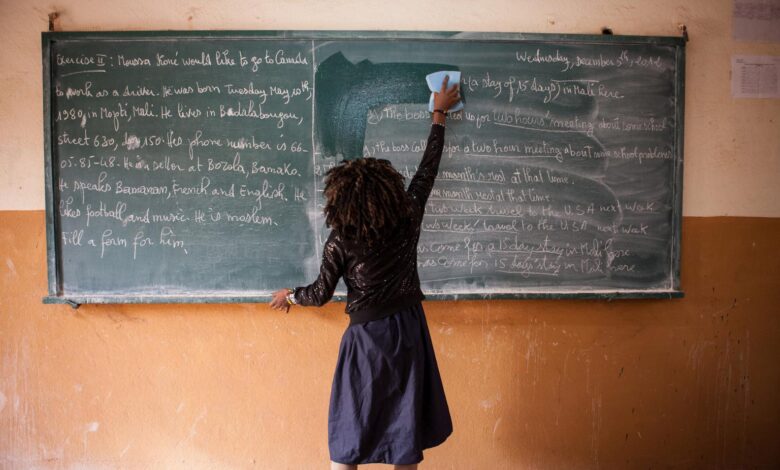 Exercise II : Moussa Koné would like to go to Canada
to work as a driver. He was born Tuesday May 10th,
1980, in Mopti, Mali. He lives in Badalabougou,
street 630, do, 150. His phone number is 66-
05-85-48. He is a seller at Bozola, Bamako.
He speaks Bamanan, French and English. He
likes football and music. He is moslem.
Fill a form for him.
Wednesday, December 5th, 2012
(a stay of 15 days) in Mali here.
The boss us for two hours' meeting about some school
The boss for a two hour meeting about some school problems
month's at that time.
month at that time.
two week travel to the USA next week
two weeks' travel to the USA next week
Come for a 15 day stay in Mali here
Come for 15 days' stay in Mali here